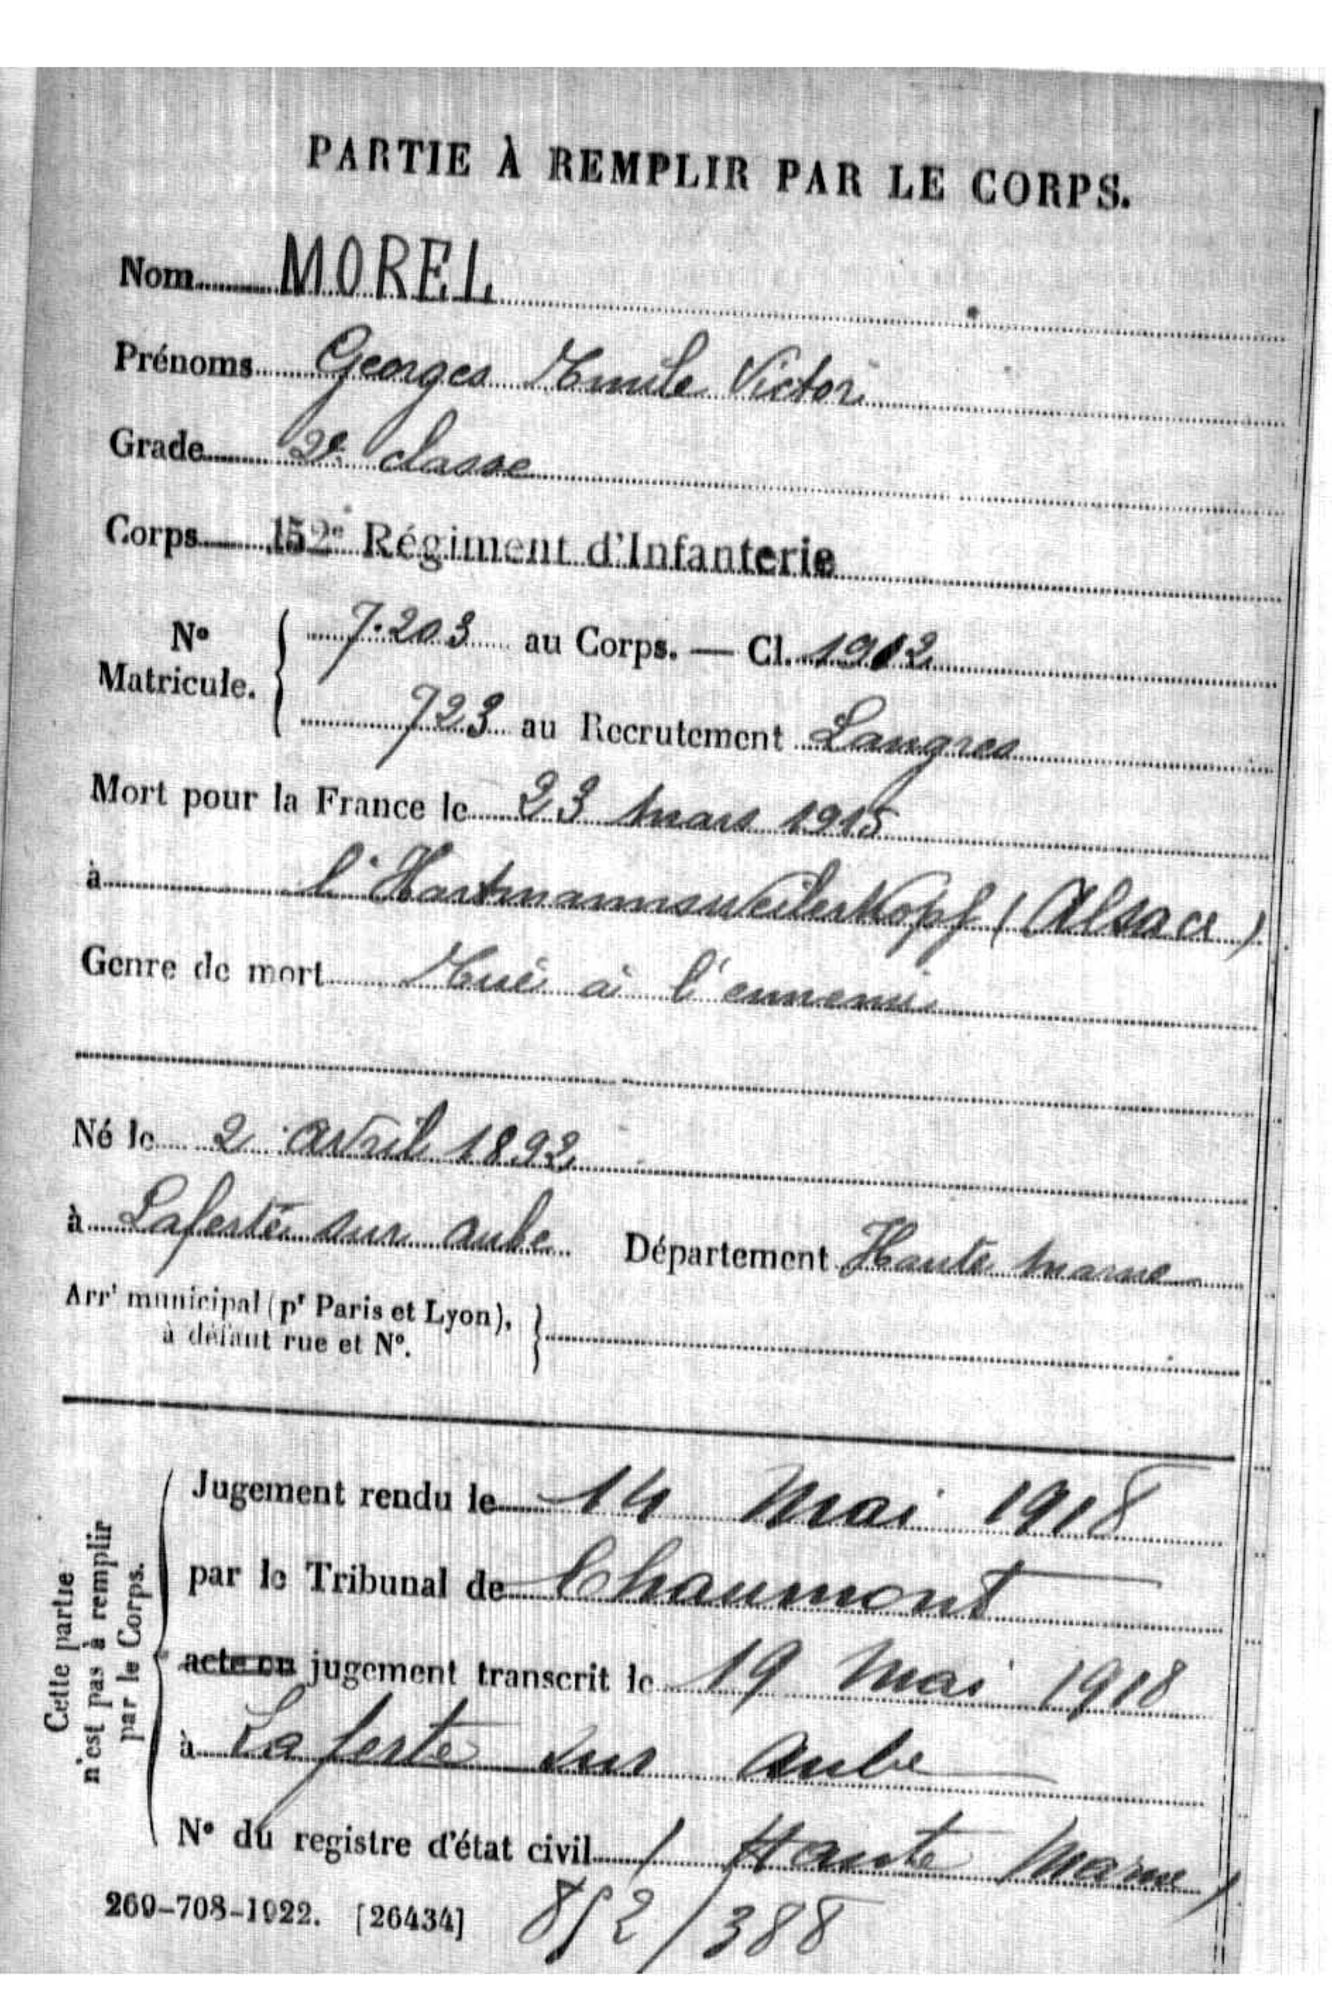 PARTIE À REMPLIR PAR LE CORPS.
Nom MOREL
Prénoms Georges Emile Victor
Grade 2e classe
Corps 152e Régiment d'Infanterie
No Matricule. { 7.203 au Corps. — Cl. 1912
723 au Recrutement Langres
Mort pour la France le 23 mars 1915
à l'Hartmannsweilerkopf (Alsace)
Genre de mort Tué à l'ennemi
Né le 2 avril 1892
à Laferté sur aube Département Haute marne
Arrt municipal (pr Paris et Lyon), }
à défaut rue et No.
Cette partie
n'est pas à remplir
par le Corps.
Jugement rendu le 14 Mai 1918
par le Tribunal de Chaumont
acte ou jugement transcrit le 19 Mai 1918
à La ferté sur Aube
No du registre d'état civil ( Haute Marne )
269-708-1922. [26434] 852/388